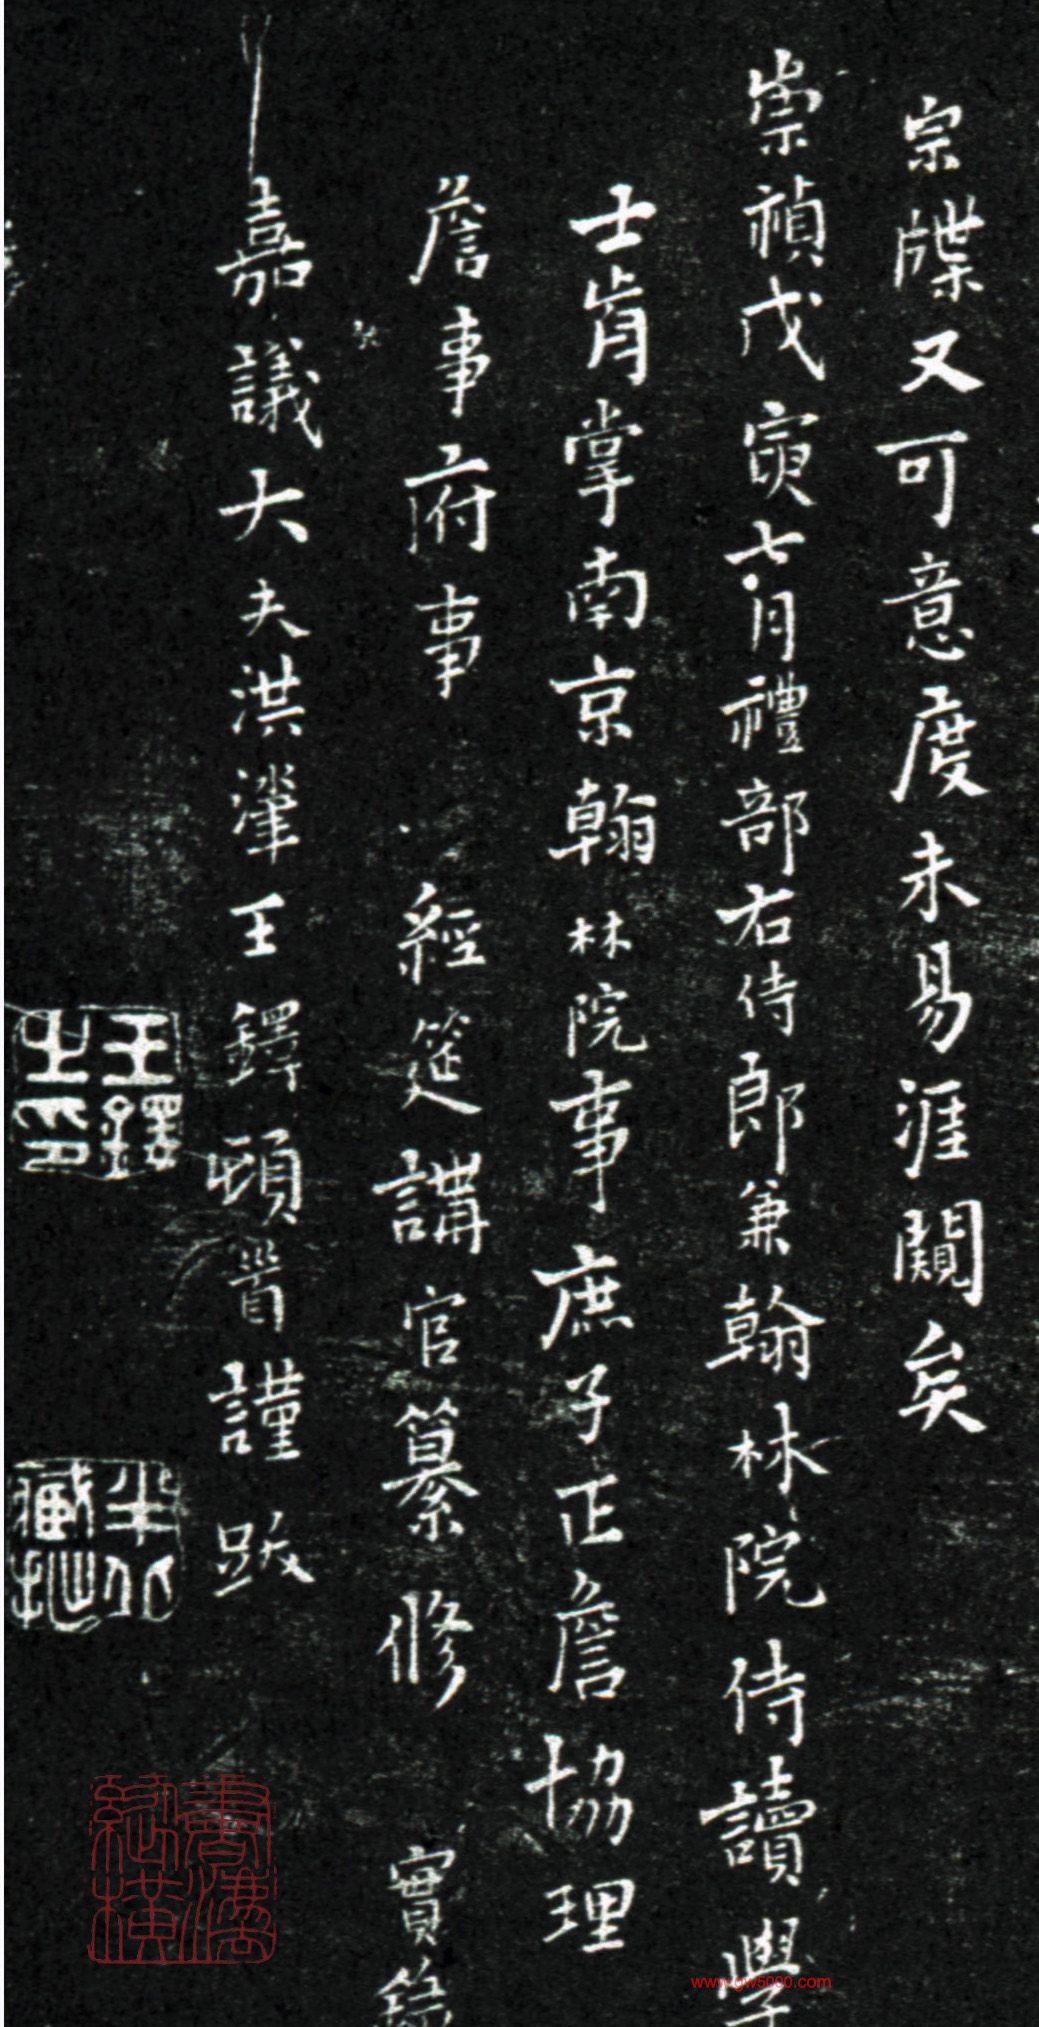 宗牒又可意度未易涯闚矣
崇禎戊寅七月禮部右侍郎兼翰林院侍讀學
士肯掌南京翰林院事庶子正詹協理
詹事府事 經筵講官纂修 實錄
嘉議大夫洪肇王鐸頓首謹跋
王鐸
之印
藏
書法
縱橫
www.gw5000.com